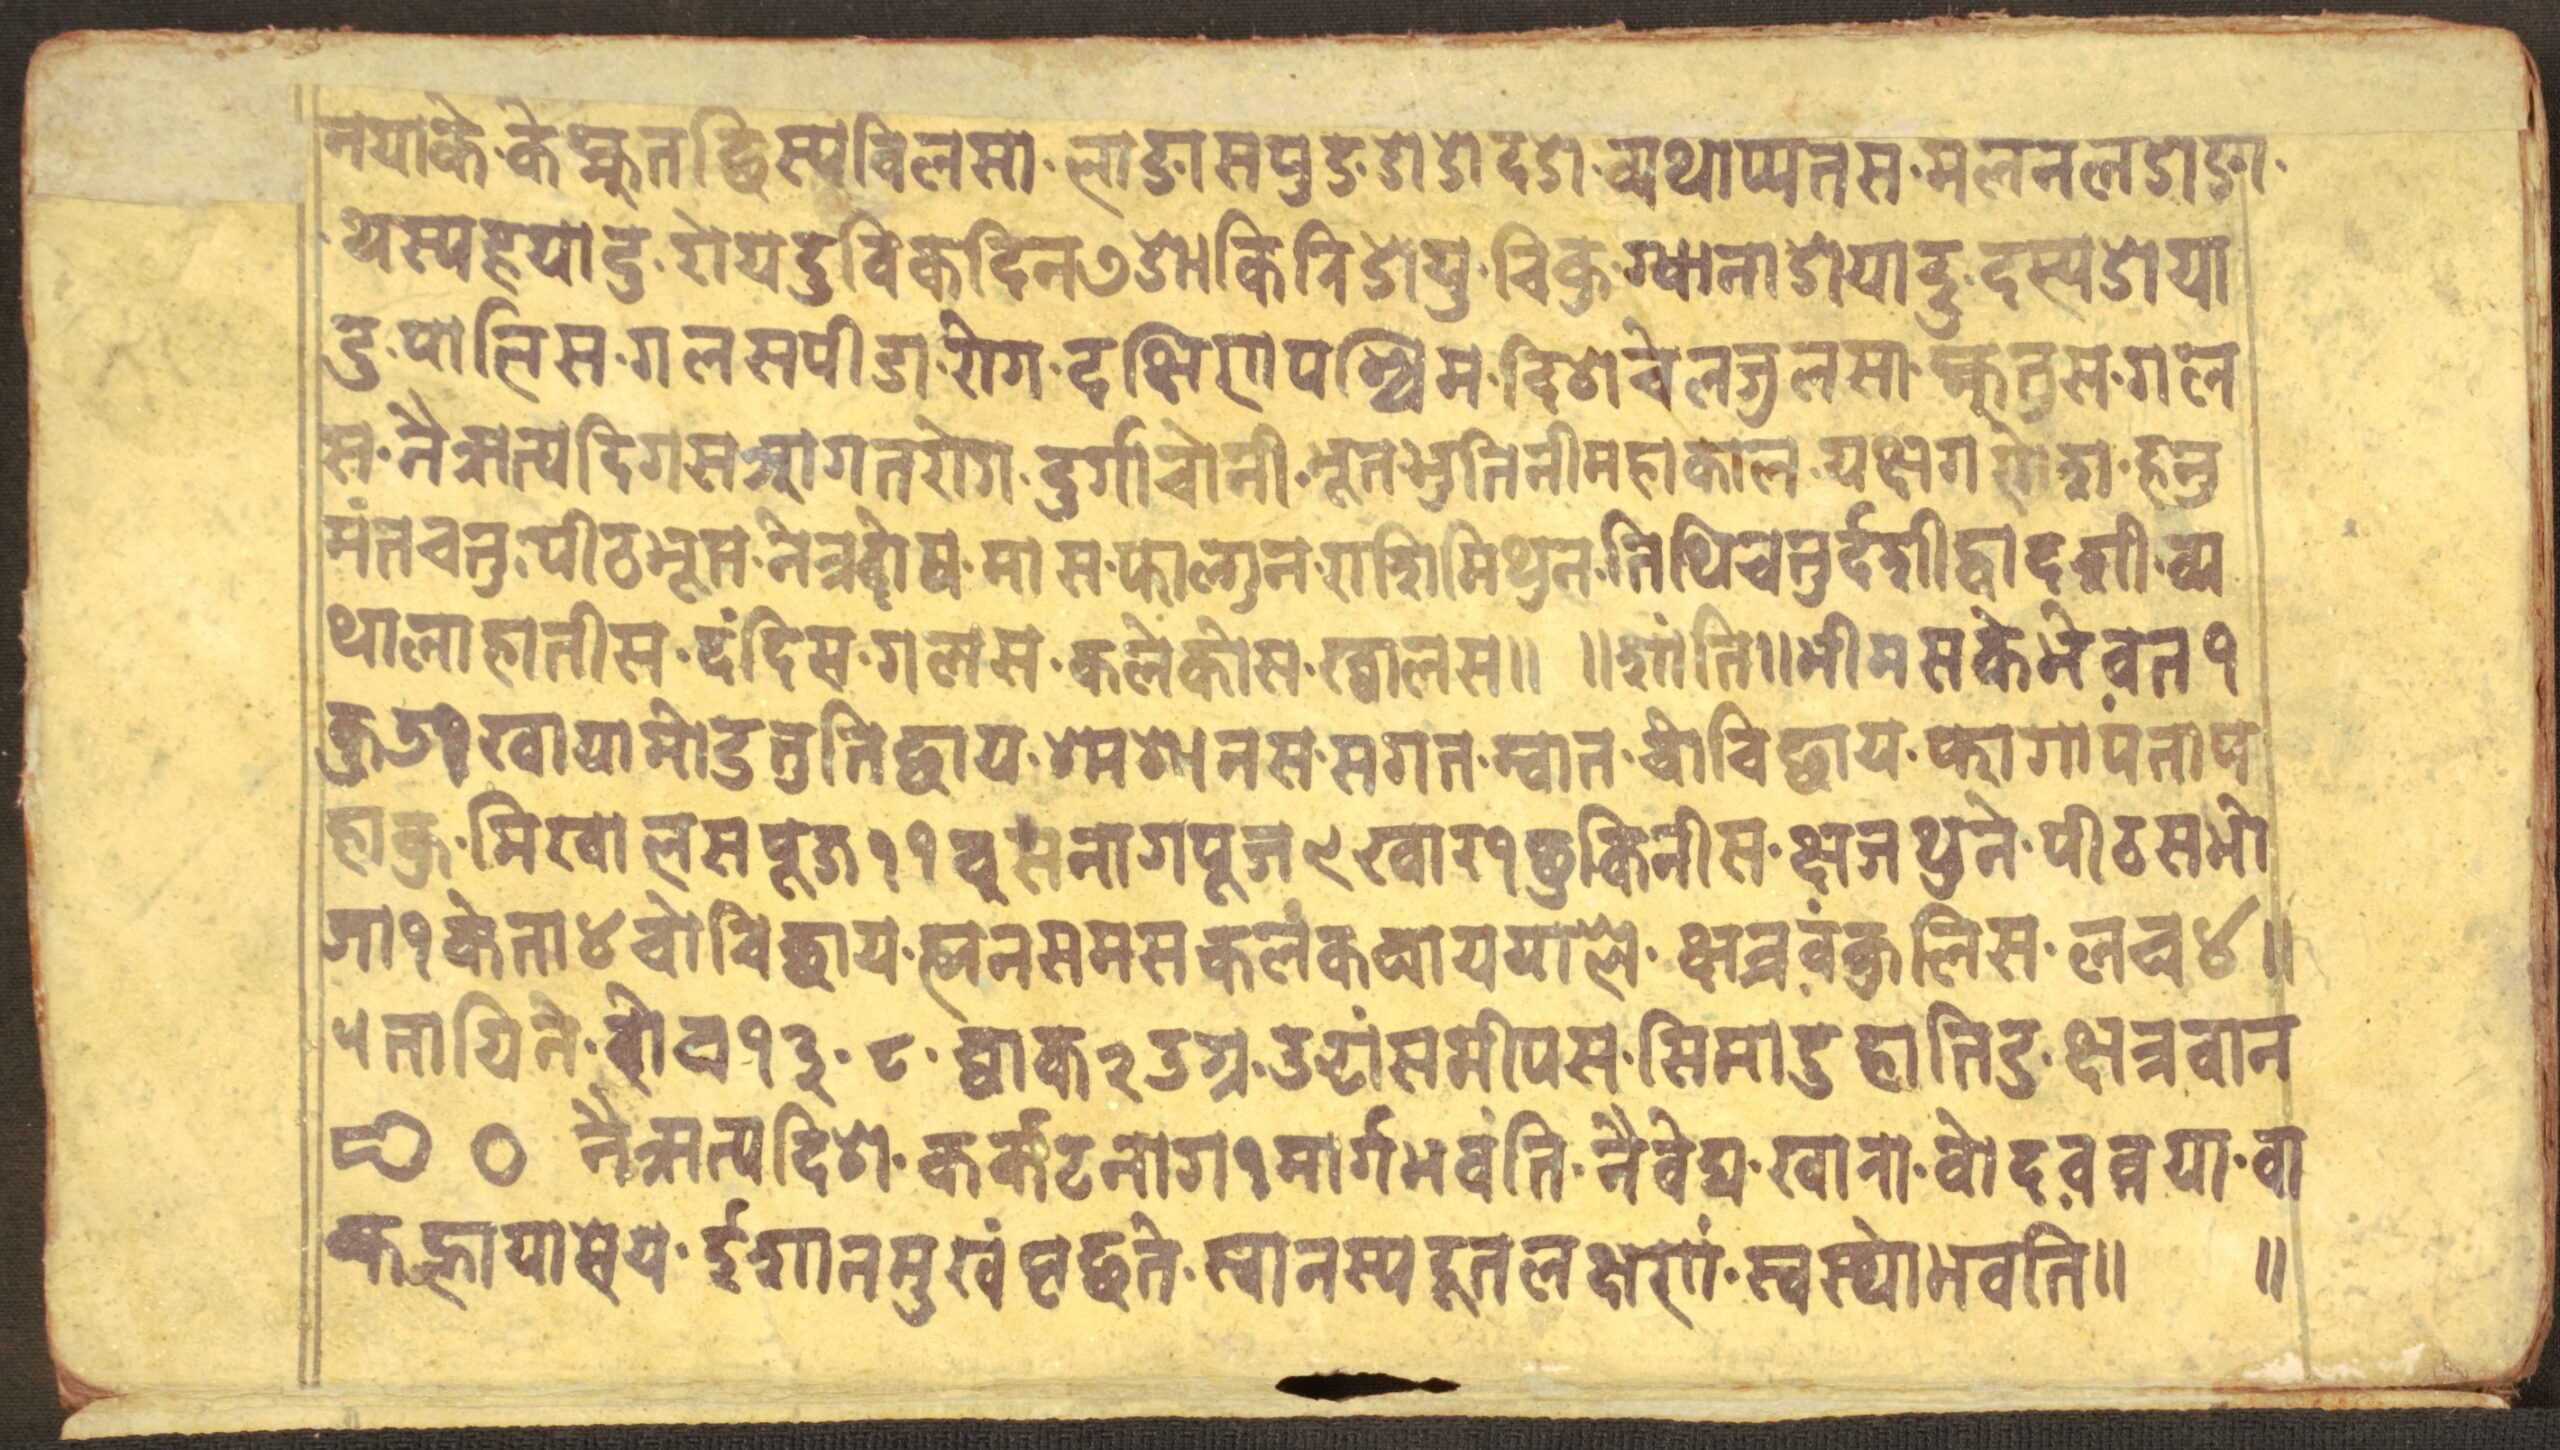 नयाके·केह्मुतछिस्यविलसा·लाङासपुङ·डोडोदडो·व्यथाप्यतस·मलनलडोङा·
थस्यह्रयादु·रोयदुविकदिन७डो।कित्रिडोयु·चिकु·ग्वानाडोयादु·दस्यडोया
दु·पालिस·गलसपीडा·रोग·दक्षिणपश्चिम·दिशेचेलजुलसा·ह्मुतुस·गल
स·नैऋत्यदिगसआगतरोग·दुर्गाचोनी·भूतभुतिनीमहाकाल·यक्षग·हनु
मंतचतु·पीठभूस·नेत्रद्वोष·मास·फाल्गुन·राशिमिथुन·तिथिचतुर्दशीद्वादशी·व्य
थालाहातीस·दंदिस·गलस·कलेकोस·ख्वालस॥ ॥शांति॥भीमसकेभेवत१
कु७१खायामोदुतुतिछाय·श्मशानस·सगत·म्वात·चोविछाय·कागापंताप
हाकु·मिखालसपूज११बुसनागपूज९खार१छुकिनीस·क्षजथुने·पीठसभो
जा१केता४चोविछाय·ह्मनसमसकलंकछाययाले·क्षत्रवंकुलिस·लख४॥
५तायिने·१३·८·ष्वाक२उग्र·उगृांसमीपस·सिमादुहातिदु·क्षत्रवान
० नैऋत्यदिशे·कर्कटनाग१मार्गभवंति·नैवेद्य·खाना·वोदवव्रया·वा
कह्नायासेय·ईशानमुखंपृछते·स्वानस्यदूतलक्षणं·स्वस्थोभवति॥ ॥